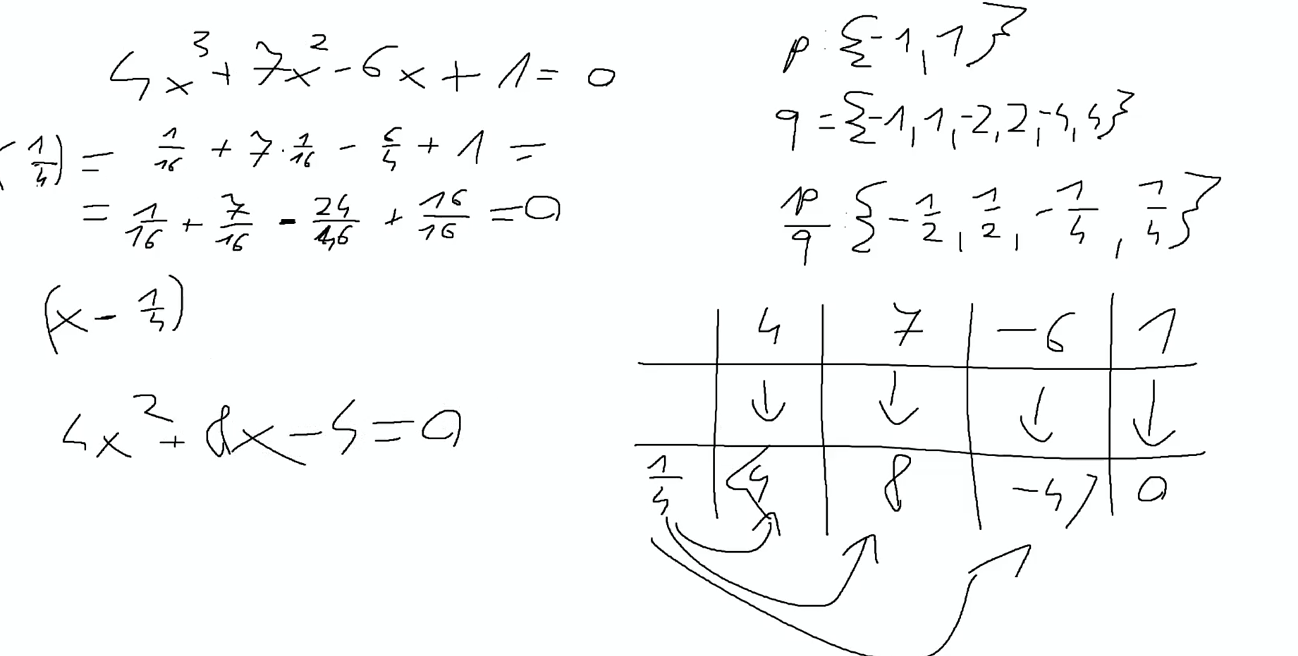 4x³ + 7x² - 6x + 1 = 0
(1/4) = 1/16 + 7·1/16 - 6/4 + 1 =
= 1/16 + 7/16 - 24/16 + 16/16 = 0
(x - 1/4)
4x² + 8x - 4 = 0
p: {-1, 1}
q = {-1, 1, -2, 2, -4, 4}
p/q: {-1/2, 1/2, -1/4, 1/4}
4 | 7 | -6 | 1
↓ | ↓ | ↓ | ↓
1/4 | 4 | 8 | -4 | 0